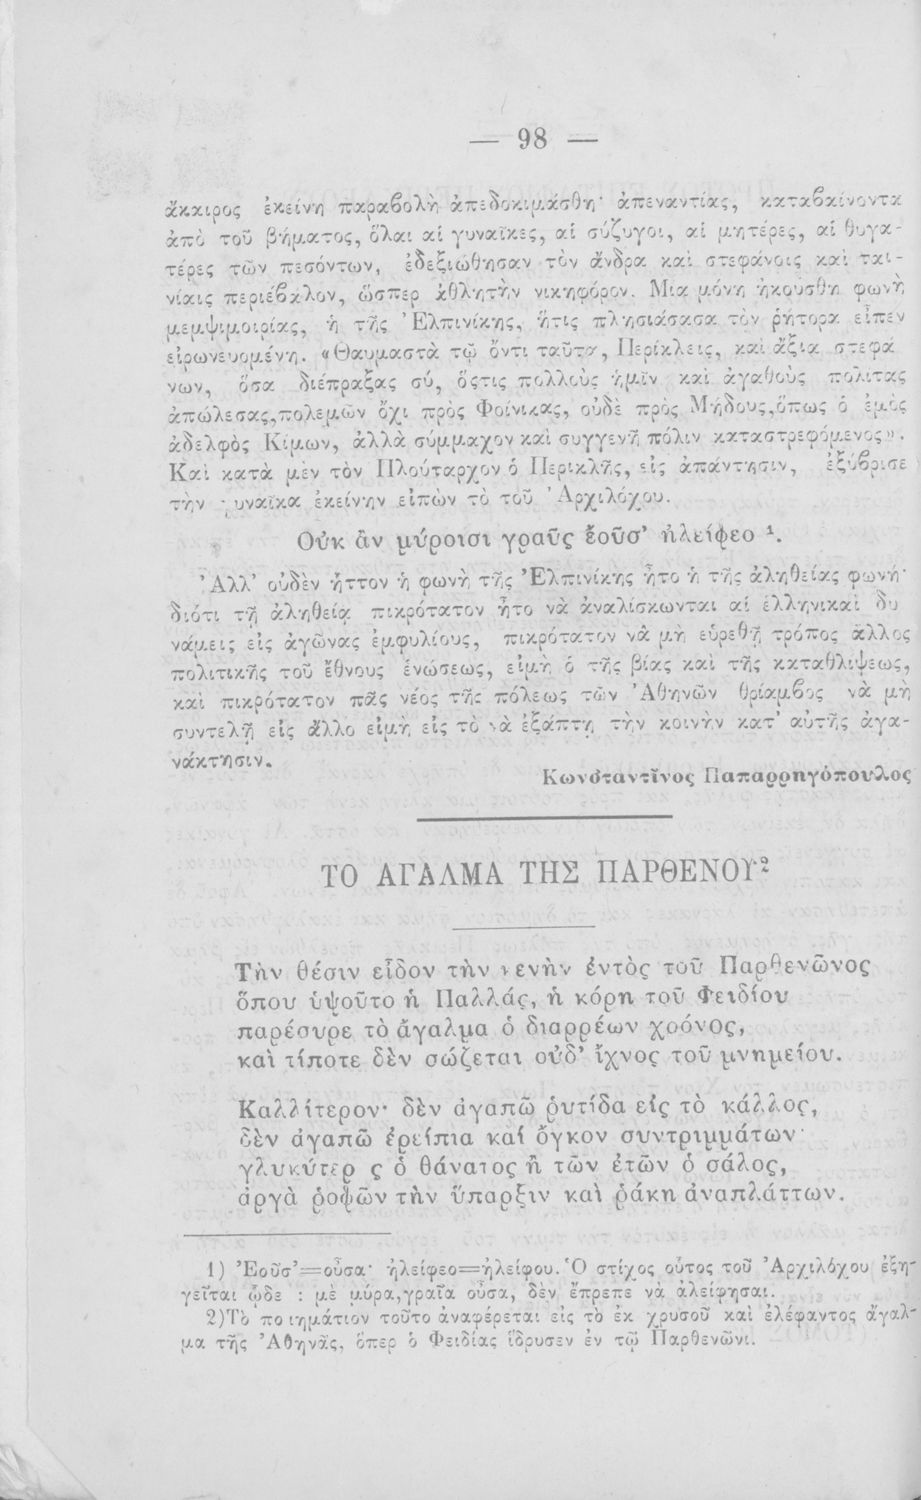 — 98 —
ἄκαιρος ἐκείνη παραβολὴ ἀπεδοκιμάσθη· ἀπεναντίας, καταβαίνοντα
ἀπὸ τοῦ βήματος, ὅλαι αἱ γυναῖκες, αἱ σύζυγοι, αἱ μητέρες, αἱ θυγα-
τέρες τῶν πεσόντων, ἐδεξιώθησαν τὸν ἄνδρα καὶ στεφάνοις καὶ ται-
νίαις περιέβαλον, ὥσπερ ἀθλητὴν νικηφόρον. Μία μόνη ἠκούσθη φωνὴ
μεμψιμοιρίας, ἡ τῆς Ἐλπινίκης, ἥτις πλησιάσασα τὸν ῥήτορα εἶπεν
εἰρωνευομένη. «Θαυμαστὰ τῷ ὄντι ταῦτα, Περίκλεις, καὶ ἄξια στεφά
νων, ὅσα διέπραξας σύ, ὅςτις πολλοὺς ἡμῖν καὶ ἀγαθοὺς πολίτας
ἀπώλεσας,πολεμῶν ὄχι πρὸς Φοίνικας, οὐδὲ πρὸς Μήδους,ὅπως ὁ ἐμὸς
ἀδελφὸς Κίμων, ἀλλὰ σύμμαχον καὶ συγγενῆ πόλιν καταστρεφόμενος».
Καὶ κατὰ μὲν τὸν Πλούταρχον ὁ Περικλῆς, εἰς ἀπάντησιν, ἐξύβρισε
τὴν γυναῖκα ἐκείνην εἰπὼν τὸ τοῦ Ἀρχιλόχου.
Οὐκ ἂν μύροισι γραῦς ἐοῦσ’ ἠλείφεο ¹.
Ἀλλ’ οὐδὲν ἧττον ἡ φωνὴ τῆς Ἐλπινίκης ἦτο ἡ τῆς ἀληθείας φωνή·
διότι τῇ ἀληθείᾳ πικρότατον ἦτο νὰ ἀναλίσκωνται αἱ ἑλληνικαὶ δυ
νάμεις εἰς ἀγῶνας ἐμφυλίους, πικρότατον νὰ μὴ εὑρεθῇ τρόπος ἄλλος
πολιτικῆς τοῦ ἔθνους ἑνώσεως, εἰμὴ ὁ τῆς βίας καὶ τῆς καταθλίψεως,
καὶ πικρότατον πᾶς νέος τῆς πόλεως τῶν Ἀθηνῶν θρίαμβος νὰ μὴ
συντελῇ εἰς ἄλλο εἰμὴ εἰς τὸ νὰ ἐξάπτῃ τὴν κοινὴν κατ’ αὐτῆς ἀγα-
νάκτησιν.
Κωνσταντῖνος Παπαρρηγόπουλος
ΤΟ ΑΓΑΛΜΑ ΤΗΣ ΠΑΡΘΕΝΟΥ²
Τὴν θέσιν εἶδον τὴν κενὴν ἐντὸς τοῦ Παρθενῶνος
ὅπου ὑψοῦτο ἡ Παλλάς, ἡ κόρη τοῦ Φειδίου
παρέσυρε τὸ ἄγαλμα ὁ διαρρέων χρόνος,
καὶ τίποτε δὲν σώζεται οὐδ’ ἴχνος τοῦ μνημείου.
Καλλίτερον· δὲν ἀγαπῶ ῥυτίδα εἰς τὸ κάλλος,
δὲν ἀγαπῶ ἐρείπια καί ὄγκον συντριμμάτων·
γλυκύτερ ς ὁ θάνατος ἢ τῶν ἐτῶν ὁ σάλος,
ἀργὰ ῥοφῶν τὴν ὕπαρξιν καὶ ῥάκη ἀναπλάττων.
1) Ἐοῦσ’=οὖσα· ἠλείφεο=ἠλείφου. Ὁ στίχος οὗτος τοῦ Ἀρχιλόχου ἐξη-
γεῖται ᾧδε : μὲ μύρα,γραῖα οὖσα, δὲν ἔπρεπε νὰ ἀλείφησαι.
2)Τὸ ποιημάτιον τοῦτο ἀναφέρεται εἰς τὸ ἐκ χρυσοῦ καὶ ἐλέφαντος ἄγαλ-
μα τῆς Ἀθηνᾶς, ὅπερ ὁ Φειδίας ἵδρυσεν ἐν τῷ Παρθενῶνι.